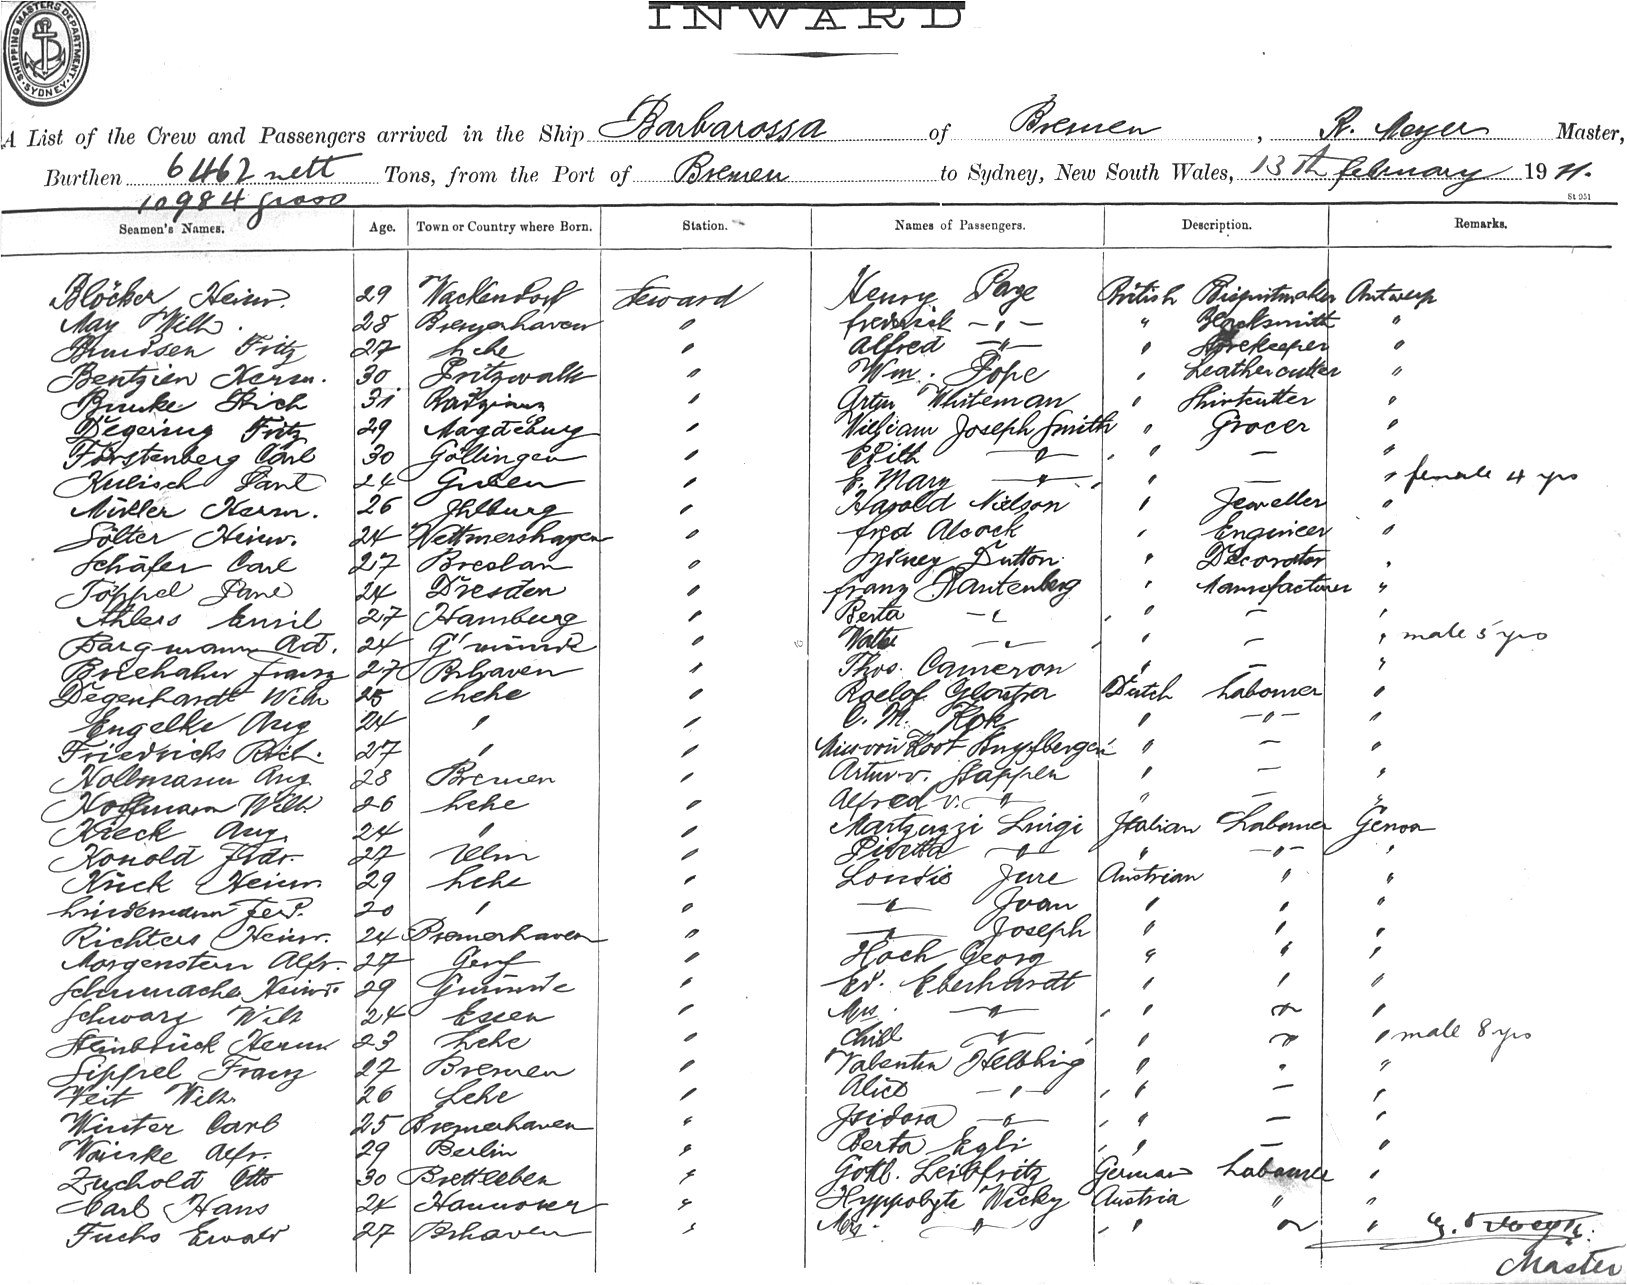 SHIPPING MASTERS DEPARTMENT SYDNEY
INWARD
A List of the Crew and Passengers arrived in the Ship Barbarossa of Bremen, R. Meyer Master,
Burthen 6462 nett Tons, from the Port of Bremen to Sydney, New South Wales, 13th february 1911.
10984 gross
St 951
Seamen's Names. Age. Town or Country where Born. Station. Names of Passengers. Description. Remarks.
Blöcker Heinr. 29 Wackendorf Steward Henry Page British Antwerp
May Wilh. 28 Bremerhaven " frederick —"— " Blacksmith "
Fritz 27 Lehe " Alfred —"— " Storekeeper "
Bentzien Herm. 30 Pritzwalk " Wm. Pope " Leathercutter "
31 " Artur Whiteman " Shirtcutter "
Degering Fritz 29 Magdeburg " William Joseph Smith " Grocer "
Förstenberg Carl 30 Göllingen " Edith —"— " — "
Kulisch Paul 24 Guben " E. Mary —"— " — " female 4 yrs
Müller Herm. 26 Ihlburg " Harold Nielson " Jeweller "
Sölter Heinr. 24 Wettmershagen " fred Alcock " Engineer "
Schäfer Carl 27 Breslau " Sydney Dutton " Decorator "
Töppel Paul 24 Dresden " franz Rautenberg " Manufacturer "
Ahlers Emil 27 Hamburg " Berta —"— " — "
Bargmann Ad. 24 G'münde " Walter —"— " — " male 5 yrs
Franz 27 Brhaven " Thos. Cameron " — "
Degenhardt Wilh 25 Lehe " Roelof Dutch Labourer "
Engelke Aug 24 " " C. M. Kok " —"— "
Friedrichs Rich. 27 " " " — "
Hollmann Aug 28 Bremen " Artur v. Stappen " — "
Hoffmann Wilh. 26 Lehe " Alfred v. —"— " — "
Kieck Aug. 24 " " Luigi Italian Labourer Genoa
Konold frdr. 27 Ulm " Pivetta —"— " —"— "
Kück Heinr. 29 Lehe " Jure Austrian " "
Lindemann Ferd. 20 " " —"— Ivan " " "
Richters Heinr. 24 Bremerhaven " —"— Joseph " " "
Morgenstern Alfr. 27 Genf " Hoch Georg " " "
Schumacher Heinr. 29 Gmünde " Ed. Eberhardt " " "
Schwarz Wilh 24 Essen " Mrs. —"— " — "
Steinbrück Herm 23 Lehe " Child —"— " — " male 8 yrs
Sippel Franz 27 Bremen " Valentin Helbling " " "
Veit Wilh. 26 Lehe " Alice —"— " — "
Winter Carl 25 Bremerhaven " Isidora —"— " — "
Alfr. 29 Berlin " Berta Egli " — "
Zuchold Otto 30 Brettleben " Gottl. Leibfritz German Labourer "
Carl Hans 24 Hannover " Hyppolyte Wicky Austria " "
Fuchs Ewald 27 Brhaven " —"— " — "
Master